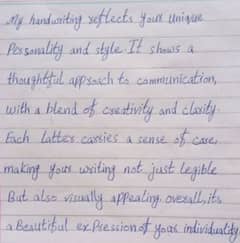 My handwriting reflects your unique
Personality and style It shows a
thoughtful approach to communication,
with a blend of creativity and clarity.
Each latter carries a sense of care,
making your writing not just legible
But also visually appeating. overall, its
a Beautiful exPression of your individuality